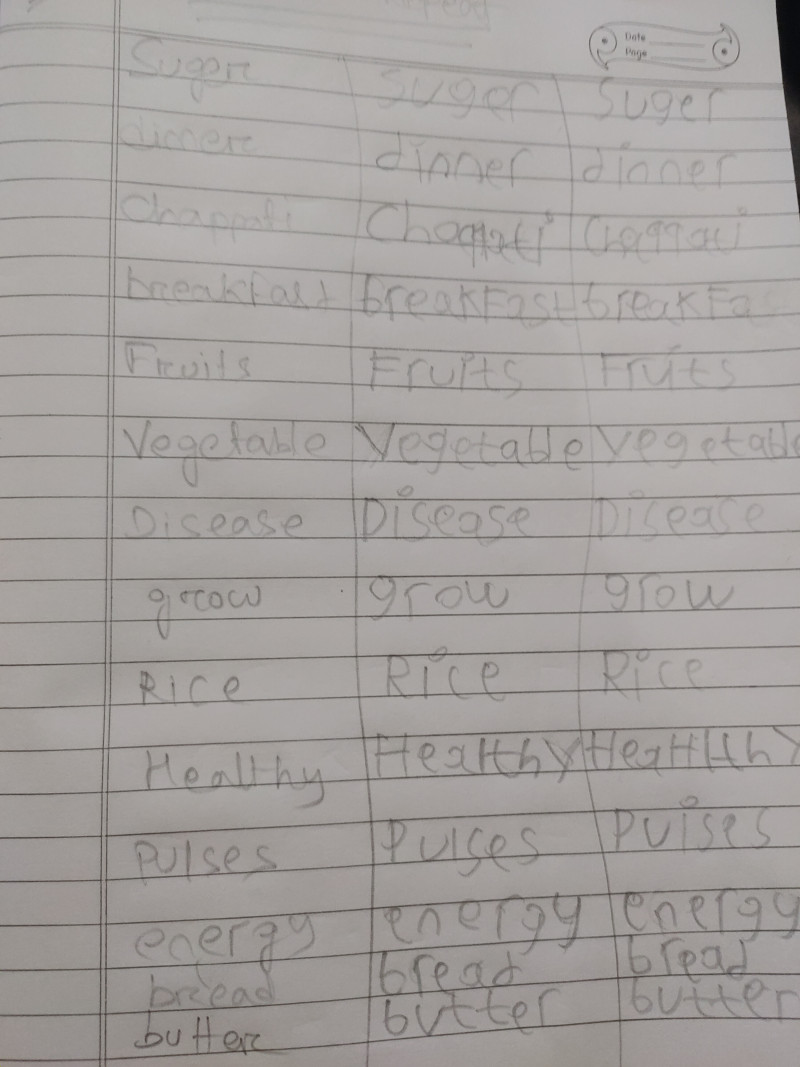 Date
Page
Sugar Suger Suger
dinner dinner dinner
Chappati Chaqpati
breakfast breakFast breakFa
Fruits Fruits Fruits
Vegetable Vegetable Vegetable
Disease Disease Disease
grow grow grow
Rice Rice Rice
Healthy Healthy Healtlthy
Pulses Pulses Puises
energy energy energy
bread bread bread
butter butter butter